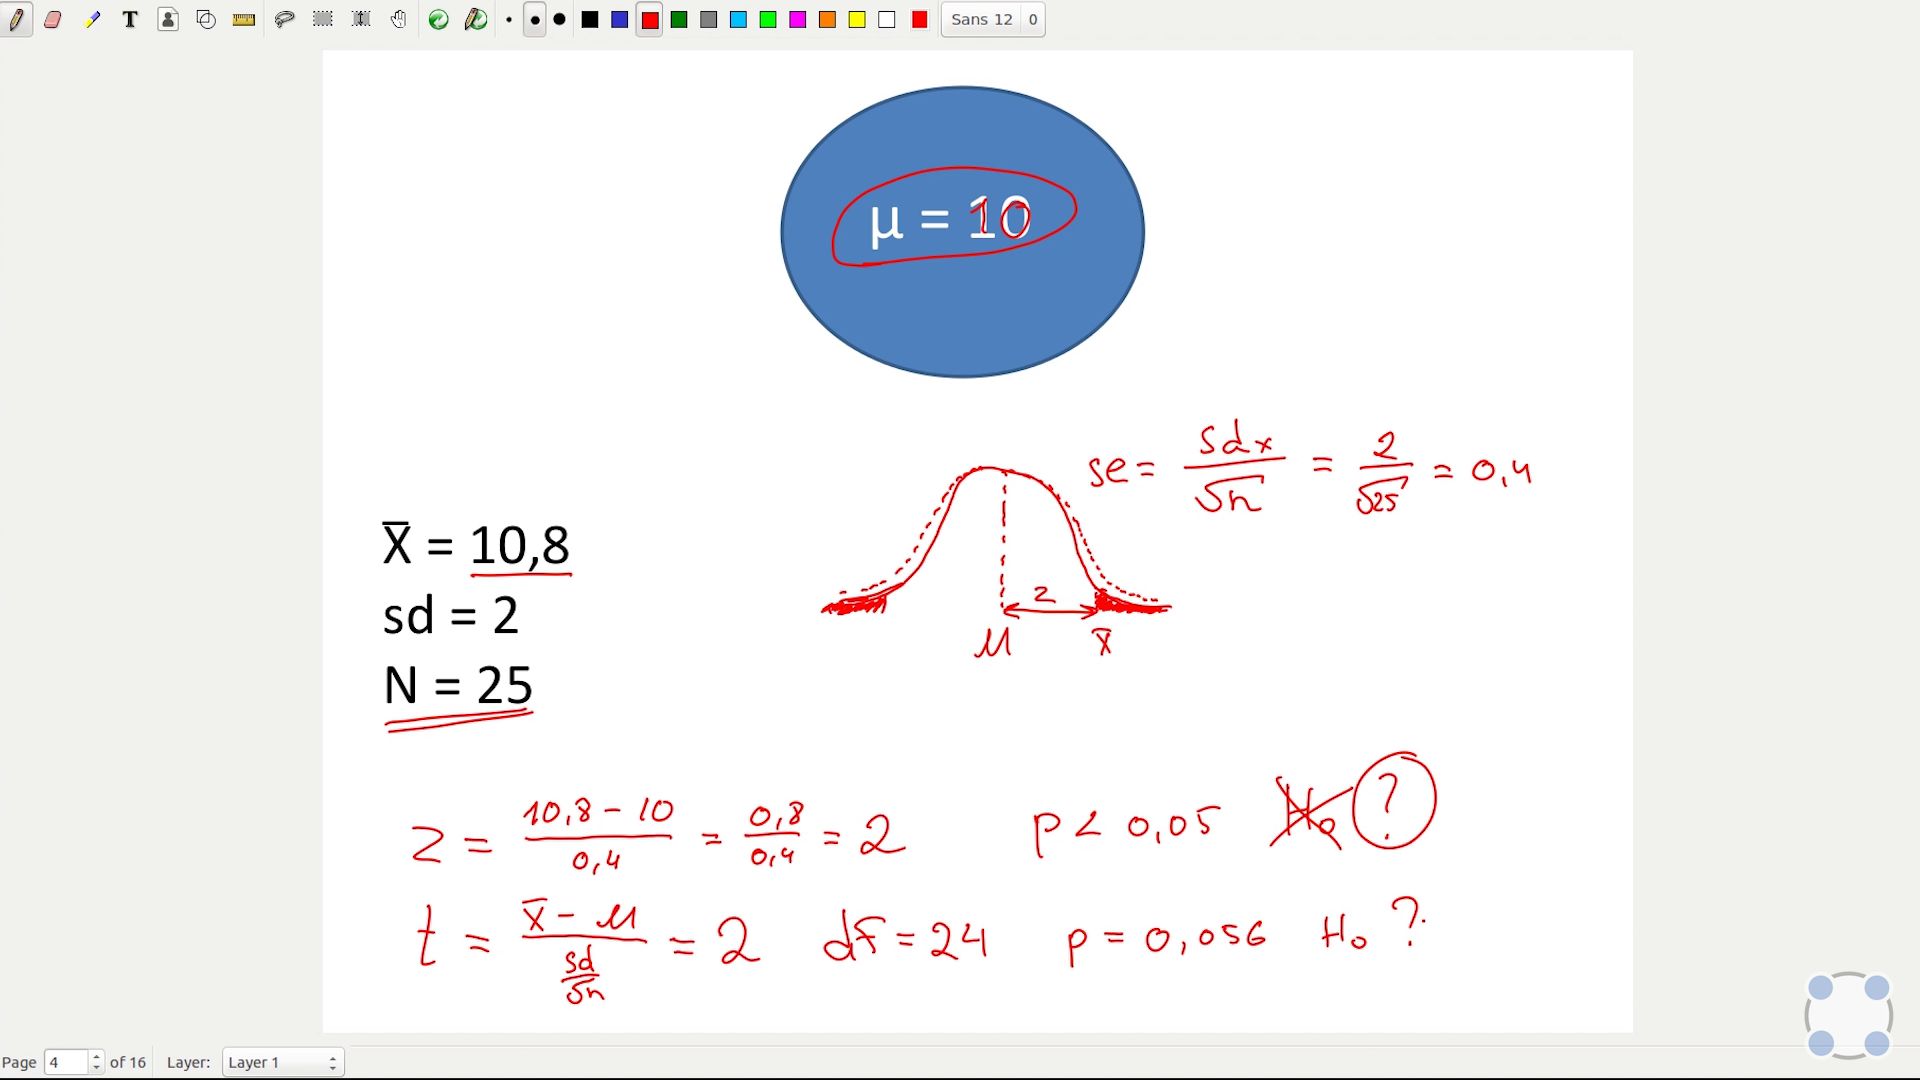 Sans 12 0
μ = 10
se = sdx / √n = 2 / √25 = 0,4
X̅ = 10,8
sd = 2
N = 25
2
μ x̅
z = 10,8 - 10 / 0,4 = 0,8 / 0,4 = 2 p < 0,05 H₀ ?
t = x̅ - μ / sd / √n = 2 df = 24 p = 0,056 H₀ ?
Page 4 of 16 Layer: Layer 1